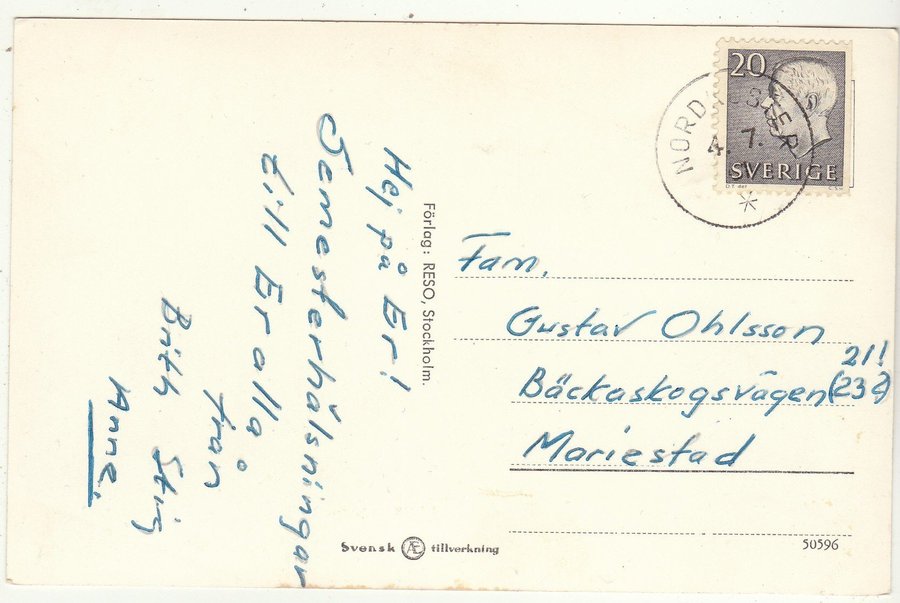 Hej på Er!
Semesterhälsningar
till Er alla
från
Brith Stig
Anne.
Förlag: RESO, Stockholm.
20
SVERIGE
4. 7.
Fam.
Gustav Ohlsson
21!
Bäckaskogsvägen (23?)
Mariestad
Svensk Æ tillverkning
50596